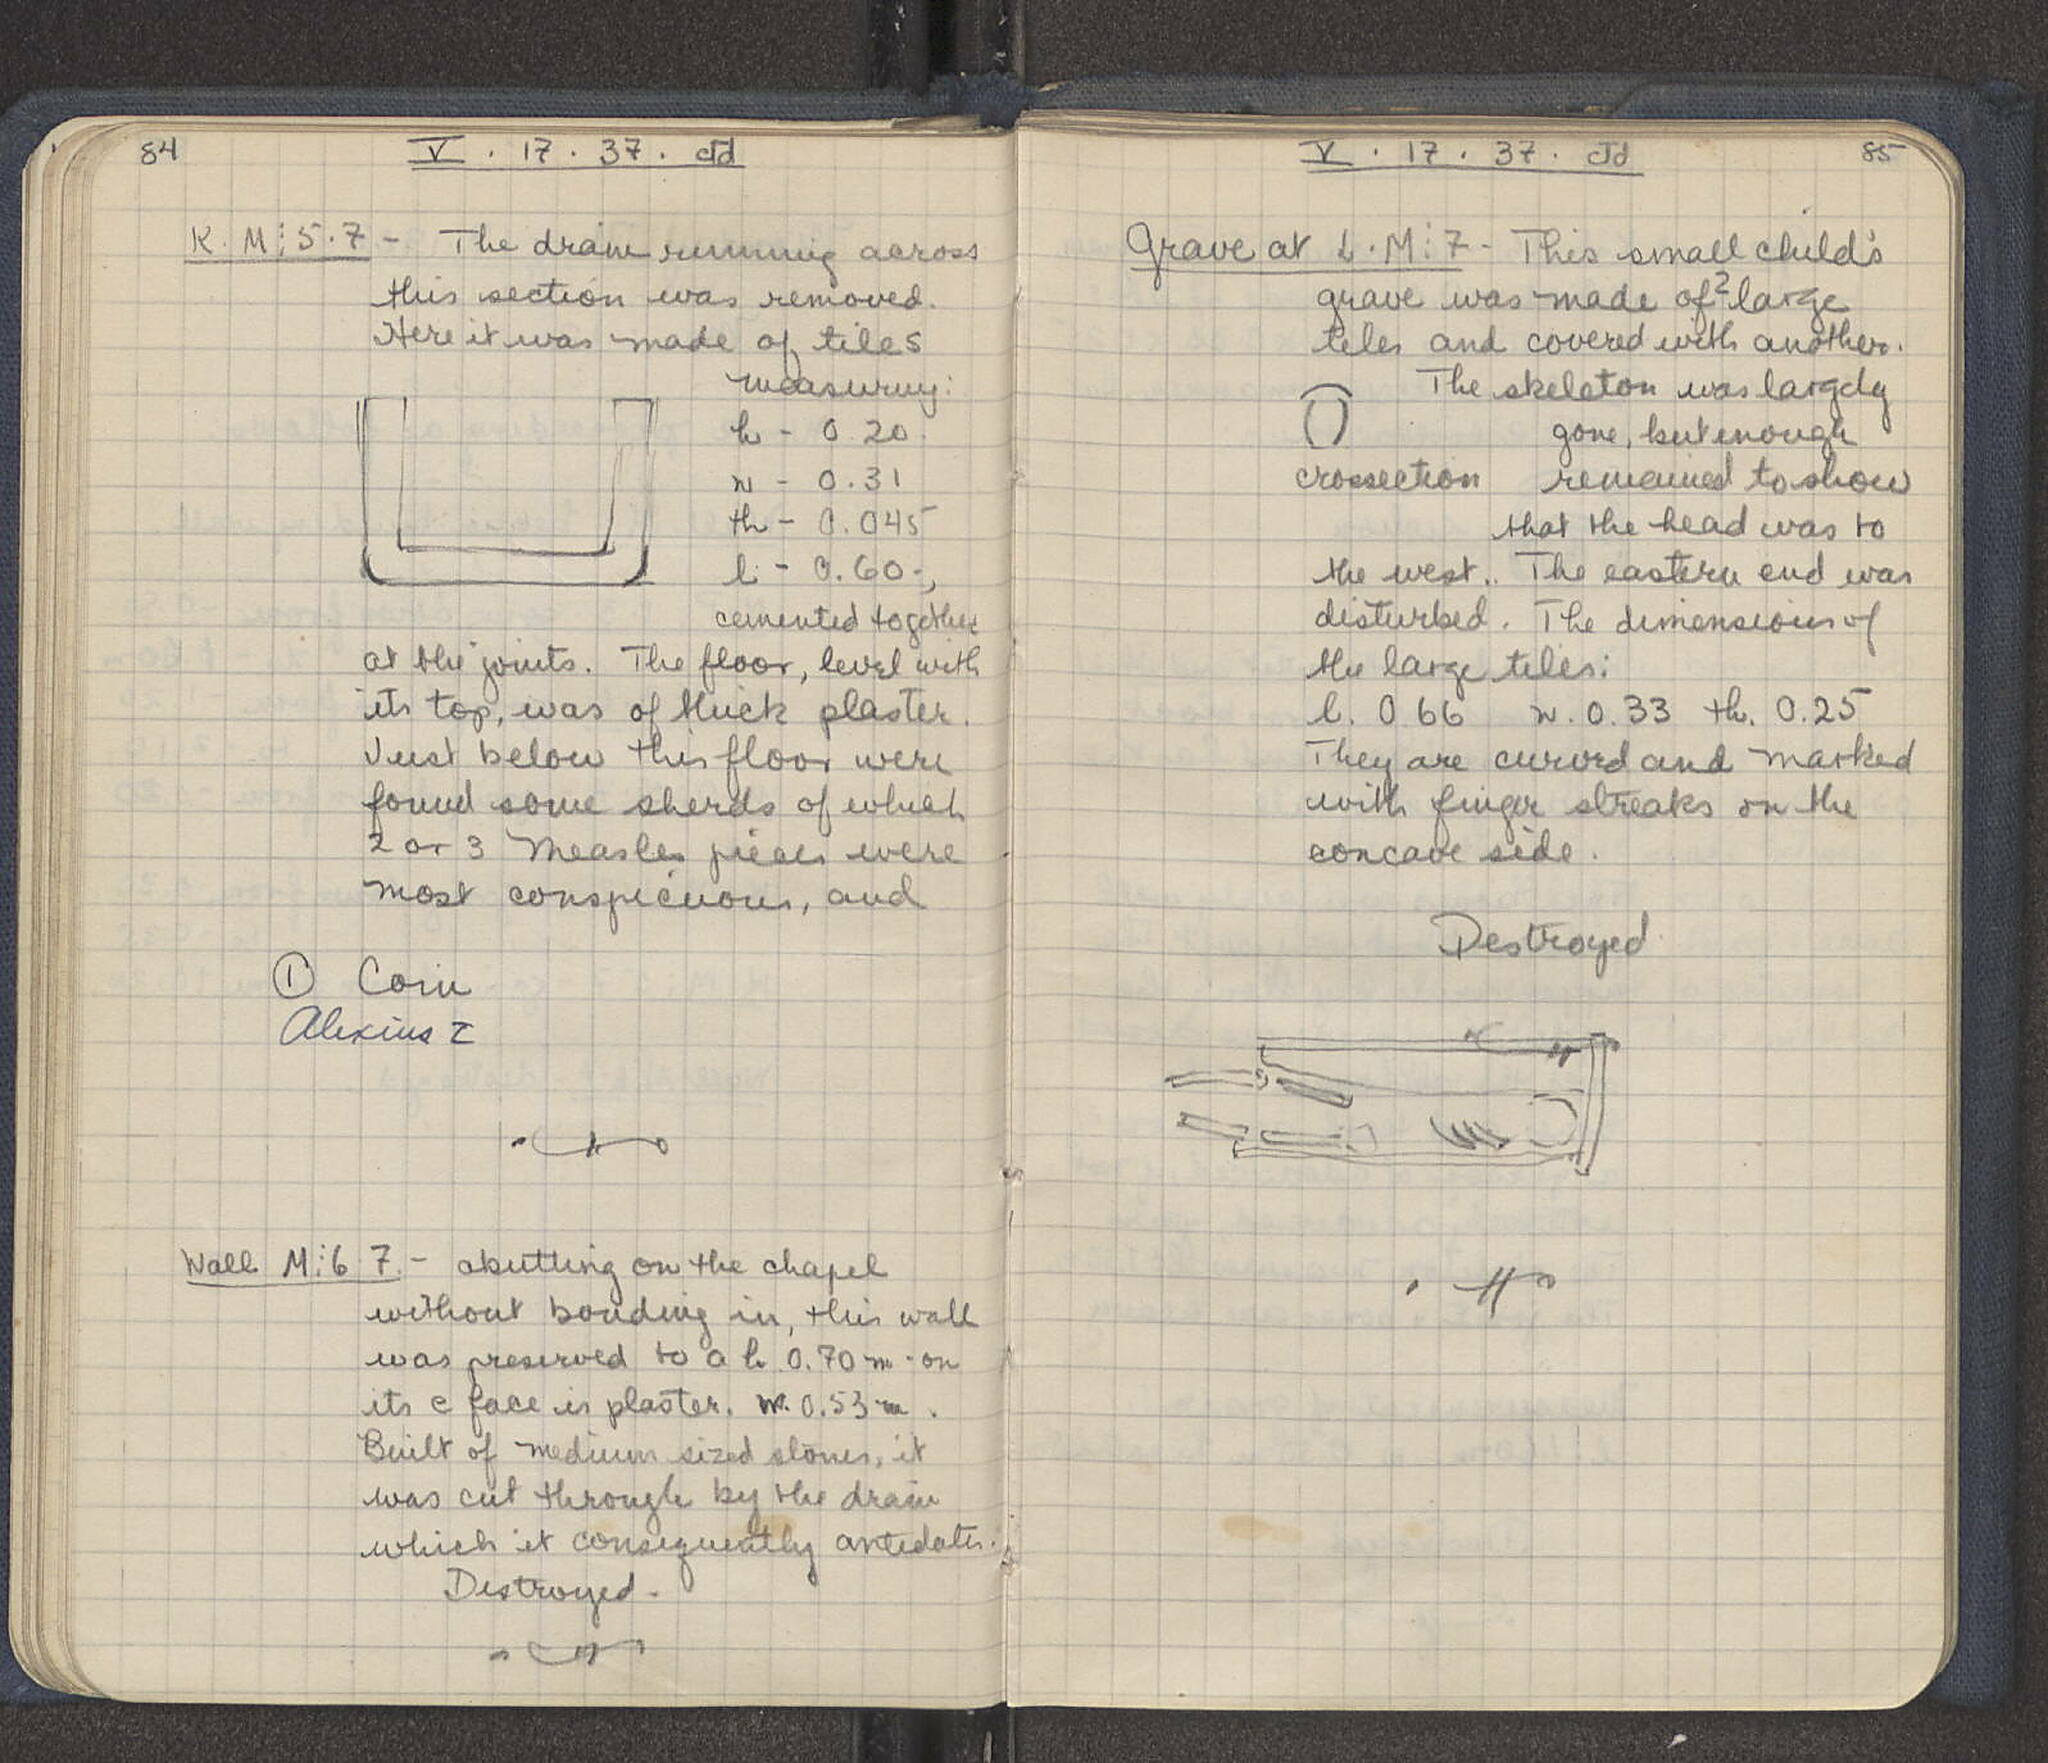 84
V . 17 . 37 . ctd
K. M: 5.7 - The drain running across
this section was removed.
Here it was made of tiles
measuring:
h - 0.20.
w - 0.31
th - 0.045
l. - 0.60-,
cemented together
at the joints. The floor, level with
its top, was of thick plaster.
Just below this floor were
found some sherds of which
2 or 3 Measles pieces were
most conspicuous, and
① Coin
Alexius I
Wall M:6 7. - abutting on the chapel
without bonding in, this wall
was preserved to a h 0.70 m - on
its e face is plaster. w. 0.53 m.
Built of medium sized stones, it
was cut through by the drain
which it consequently antedates.
Destroyed -
V . 17 . 37 . ctd
85
Grave at L.M:7 - This small child's
grave was made of 2 large
tiles and covered with another.
The skeleton was largely
gone, but enough
crossection remained to show
that the head was to
the west.. The eastern end was
disturbed. The dimensions of
the large tiles:
l. 0 66 w. 0.33 th. 0.25
They are curved and marked
with finger streaks on the
concave side.
Destroyed